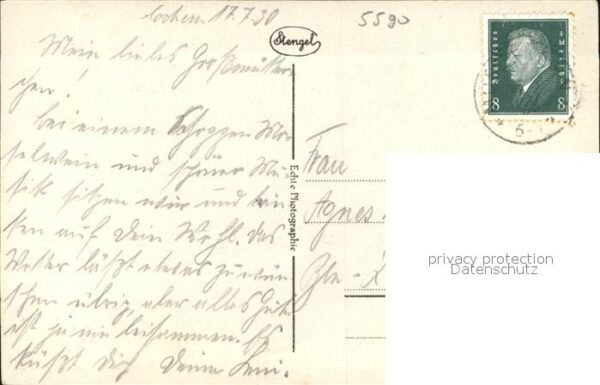 Cochem 17.7.30
5590
Mein liebes Großmütter-
chen!
Bei einem Schoppen Mo-
selwein und schöner Mu-
sik sitzen wir und trin-
ken auf Dein Wohl. Das
Wetter läßt etwas zu wün-
schen übrig, aber alles Gute
ist ja nie beisammen. Es
küßt Dich Deine Leni.
Stengel
Echte Photographie
Deutsches Reich
8 8
Frau
Agnes
privacy protection
Datenschutz